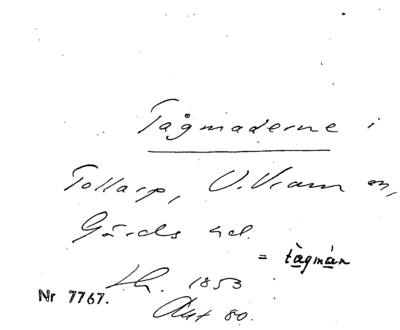 Tågmaderne i
Tollarp, V. Vram sn,
Gärds hd.
= tàgmàn
Lh. 1853
Nr 7767.
Akt 80.